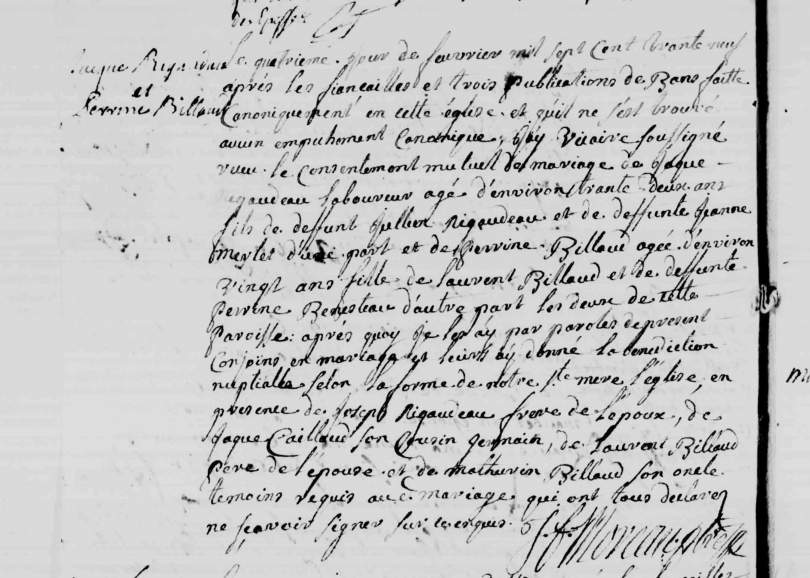 Jacque Rigaudeau
et
Perrine Billaud
Le quatrieme jour de feuvrier mil sept Cent trante neuf
aprés les fiancailles et trois publications de Bans faitte
Canoniquement en cette église et qu'il ne s'est trouvé
aucun empechement Canonique, Jay Vicaire soussigné
receu le Consentement mutuel de mariage de Jaque
Rigaudeau laboureur agé d'environ trante deux ans
fils de deffunt Jullien Rigaudeau et de deffunte Jeanne
d'une part et de Perrine Billaud agée d'environ
Vingt ans fille de laurent Billaud et de deffunte
Perrine d'autre part les deux de cette
Paroisse: aprés quoy Je les ay par paroles de present
Conjoins en mariage et leurs ay donné la benediction
nuptialle selon la forme de notre Ste mere l'église, en
presence de Joseph Rigaudeau frere de l'epoux, de
Jaque Caillaud son Cousin germain, de Laurent Billaud
Pere de l'epouse et de mathurin Billaud son oncle
temoins requis au mariage qui ont tous declarez
ne sçavoir signer sur ce enquis.
Moreau